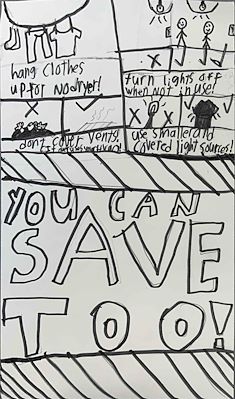 hang clothes
up for no dryer!
turn lights off
when not in use!
dont cover vents!
use smaller and
covered light sources!
YOU CAN
SAVE
TOO!